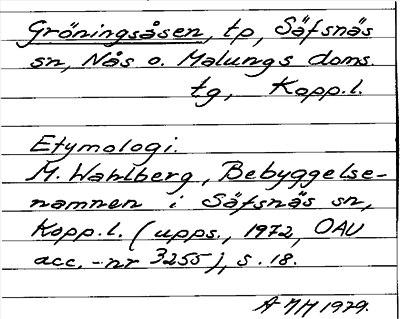 Gröningsåsen, tp, Säfsnäs
sn, Nås o. Malungs doms.
tg, Kopp.l.
Etymologi.
M. Wahlberg, Bebyggelse-
namnen i Säfsnäs sn,
Kopp.l. (upps., 1972, OAU
acc.-nr 3255), s. 18.
AMH 1979.